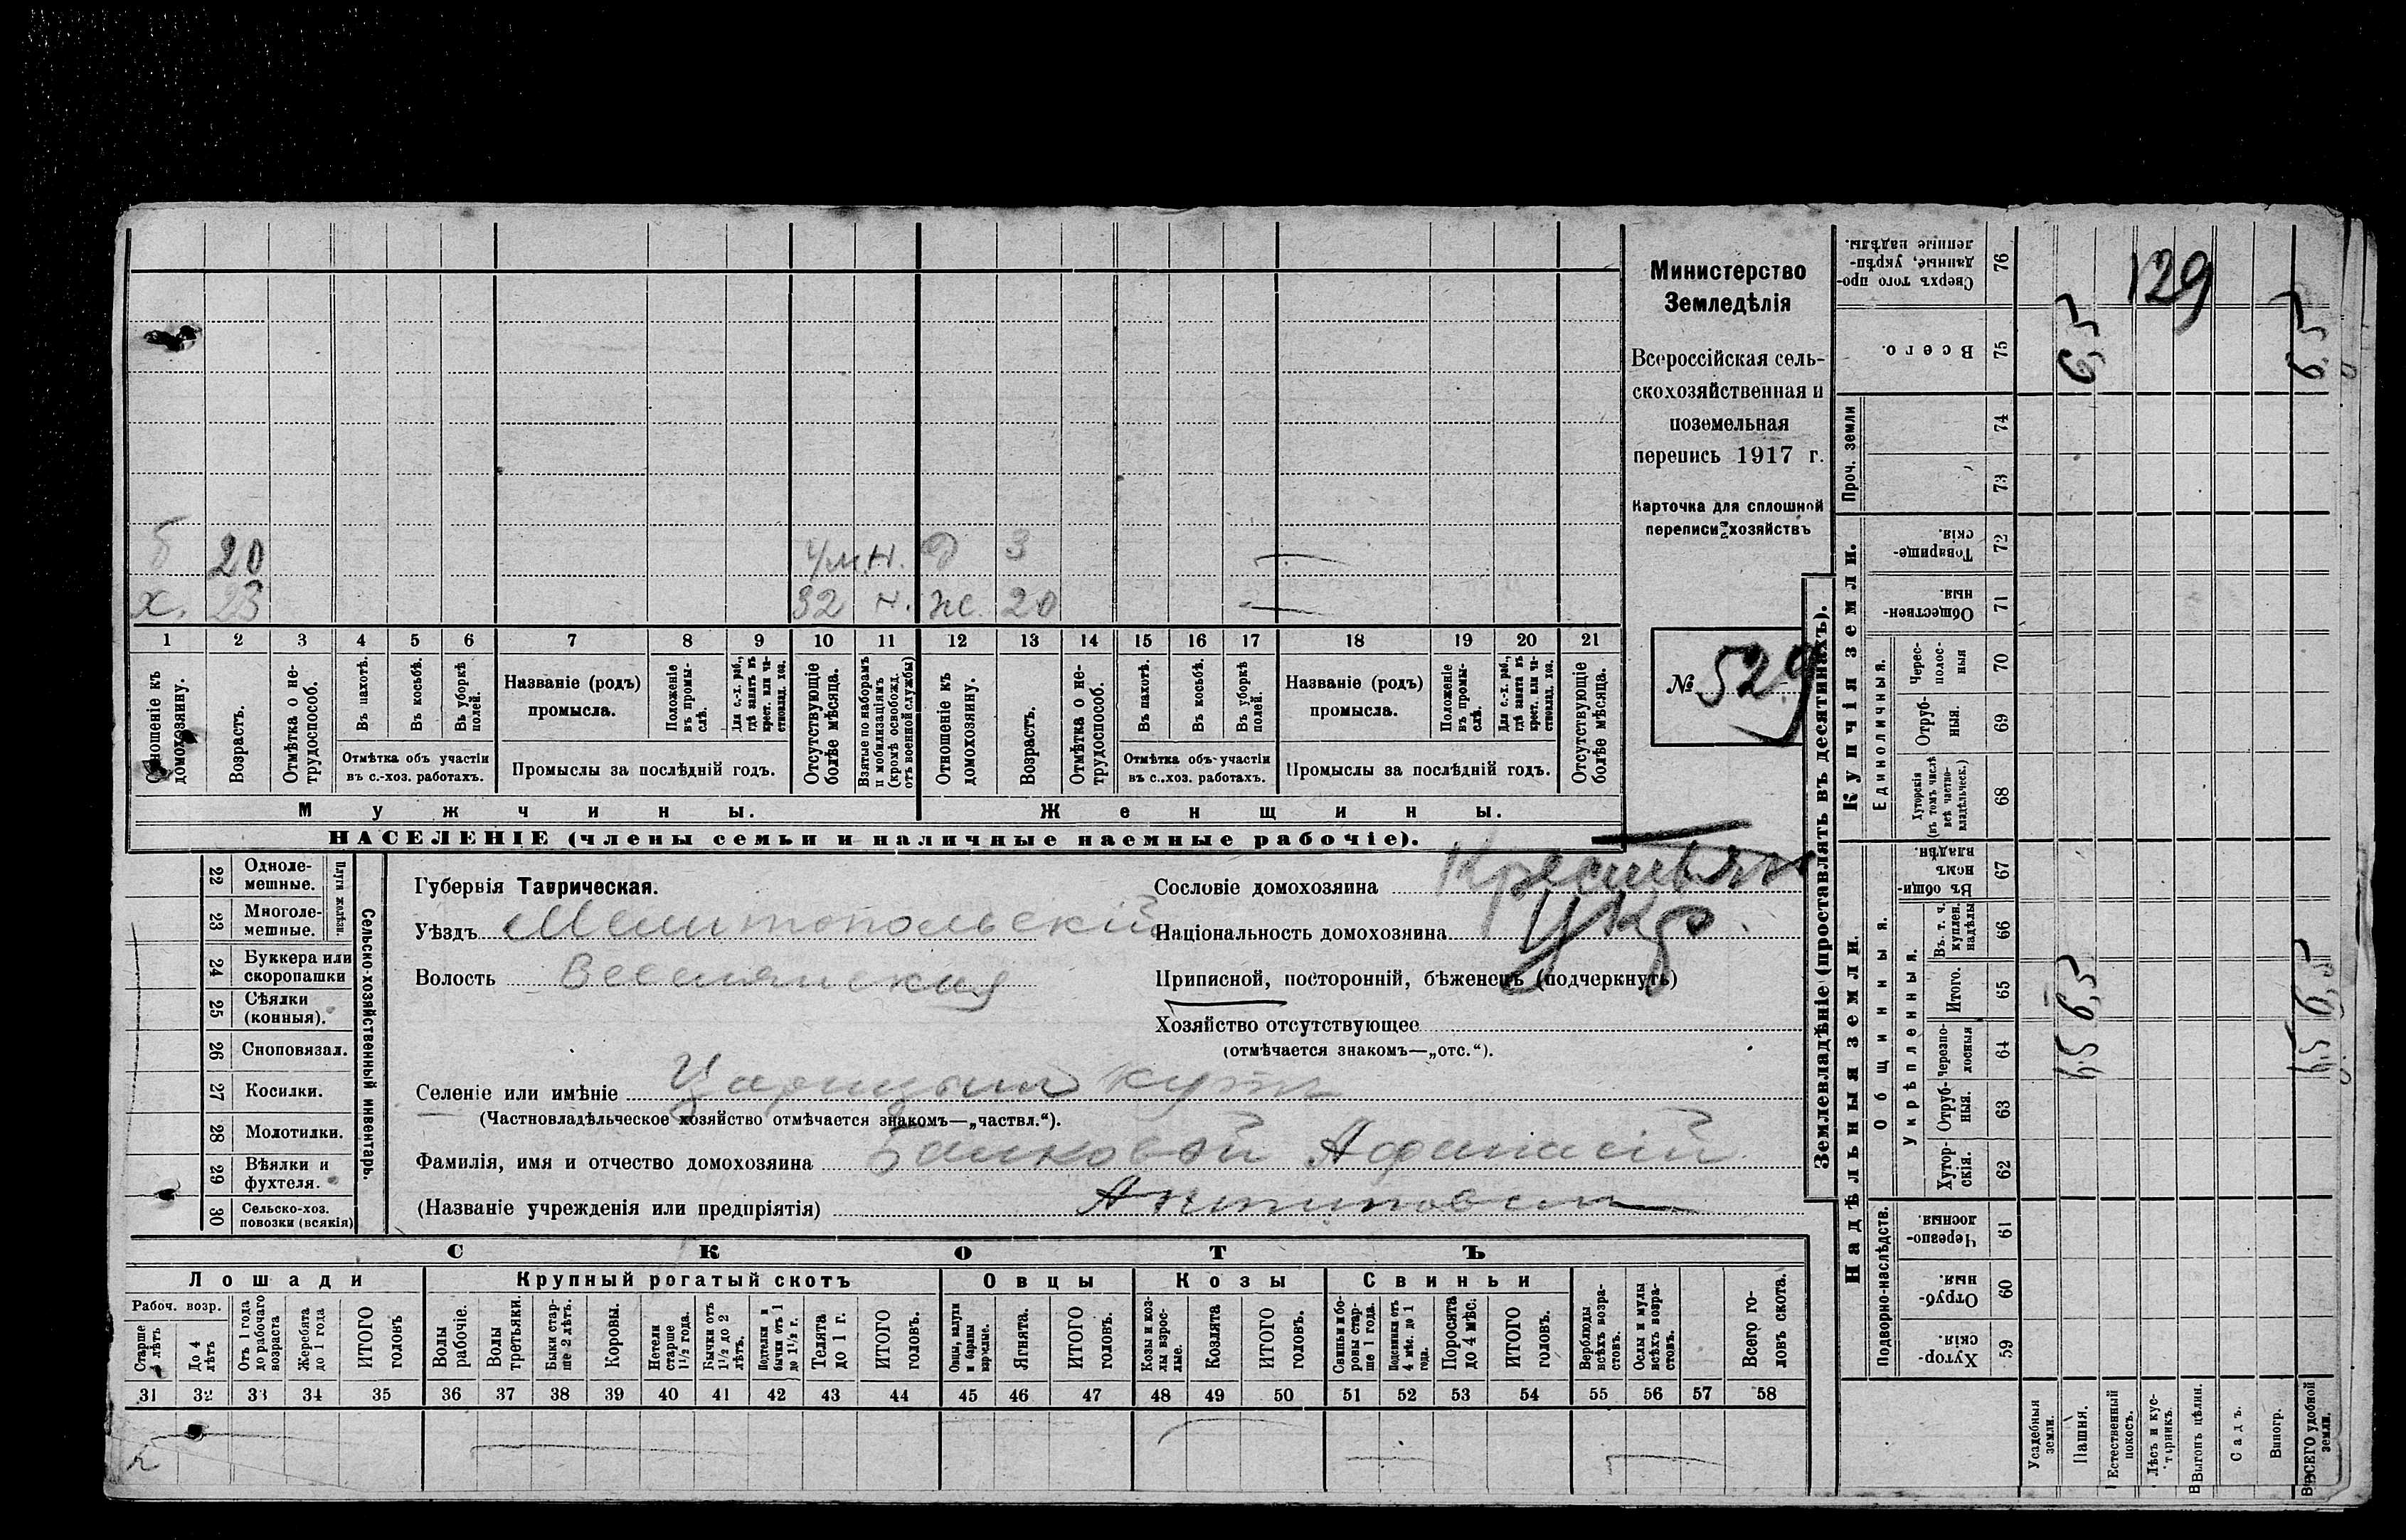 Министерство
Земледѣлія
Всероссійская сель-
скохозяйственная и
поземельная
перепись 1917 г.
Карточка для сплошной
переписи хозяйствъ
№ 529
б 20 4 м. Н. д 3
х. 23 32 н. ж. 20
1 2 3 4 5 6 7 8 9 10 11 12 13 14 15 16 17 18 19 20 21
Отношеніе къ домохозяину.
Возрастъ.
Отмѣтка о не-трудоспособ.
Въ пахотѣ.
Въ косьбѣ.
Въ уборкѣ полей.
Отмѣтка объ участіи
въ с.-хоз. работахъ.
Названіе (родъ)
промысла.
Положеніе въ промы-слѣ.
Для с.-х. раб., гдѣ занятъ въ крест. или ча-стновлад. хоз.
Промыслы за послѣдній годъ.
Отсутствующіе болѣе мѣсяца.
Взятые по наборамъ и мобилизаціямъ (кромѣ освобожд. отъ военной службы)
Отношеніе къ домохозяину.
Возрастъ.
Отмѣтка о не-трудоспособ.
Въ пахотѣ.
Въ косьбѣ.
Въ уборкѣ полей.
Отмѣтка объ участіи
въ с.-хоз. работахъ.
Названіе (родъ)
промысла.
Положеніе въ промы-слѣ.
Для с.-х. раб., гдѣ занята въ крест. или ча-стновлад. хоз.
Промыслы за послѣдній годъ.
Отсутствующіе болѣе мѣсяца.
Мужчины. Женщины.
НАСЕЛЕНІЕ (члены семьи и наличные наемные рабочіе).
Сельско-хозяйственный инвентарь.
Плуги желѣзн.
22 Одноле-мешные.
23 Многоле-мешные.
24 Буккера или скоропашки
25 Сѣялки (конныя).
26 Сноповязал.
27 Косилки.
28 Молотилки.
29 Вѣялки и фухтеля.
30 Сельско-хоз. повозки (всякія)
Губернія Таврическая.
Уѣздъ Мелитопольскій
Волость Веселянская
Селеніе или имѣніе Царицынъ кутъ
(Частновладѣльческое хозяйство отмѣчается знакомъ—„частвл.“).
Фамилія, имя и отчество домохозяина Балковой Афанасій
(Названіе учрежденія или предпріятія) Антиповичъ
Сословіе домохозяина Крестьян
Національность домохозяина Укр.
Приписной, посторонній, бѣженецъ (подчеркнуть)
Хозяйство отсутствующее
(отмѣчается знакомъ—„отс.“).
СКОТЪ
Лошади Крупный рогатый скотъ Овцы Козы Свиньи
Рабоч. возр.
Старше 4 лѣтъ
До 4 лѣтъ
Отъ 1 года до рабочаго возраста
Жеребята до 1 года
ИТОГО головъ
Волы рабочіе.
Волы третьяки.
Быки стар-ше 2 лѣтъ.
Коровы.
Нетели старше 1½ года.
Бычки отъ 1½ до 2 лѣтъ.
Подтелки и бычки отъ 1 до 1½ г.
Телята до 1 г.
ИТОГО головъ.
Овцы, валухи и бараны взрослые.
Ягнята.
ИТОГО головъ.
Козы и коз-лы взрос-лые.
Козлята
ИТОГО головъ.
Свиньи и бо-ровы стар-ше 1 года.
Подсвинки отъ 4 мѣс. до 1 года.
Поросята до 4 мѣс.
ИТОГО головъ.
Верблюды всѣхъ возра-стовъ.
Ослы и мулы всѣхъ возра-стовъ.
Всего го-ловъ скота.
31 32 33 34 35 36 37 38 39 40 41 42 43 44 45 46 47 48 49 50 51 52 53 54 55 56 57 58
Землевладѣніе (проставлять въ десятинахъ).
Надѣльныя земли. Купчія земли.
Проч. земли
Подворно-наслѣдств.
Общинныя.
Укрѣпленныя.
Единоличныя.
Хутор-скія. 59
Отруб-ныя. 60
Черезпо-лосныя 61
Хутор-скія. 62
Отруб-ныя. 63
Черезпо-лосныя 64
Итого. 65
Въ т. ч. куплен. надѣлы 66
Въ общи-номъ владѣн. 67
Хуторскія (въ томъ числѣ всѣ частно-владѣльческ.) 68
Отруб-ныя. 69
Черес-полос-ныя 70
Обществен-ныя. 71
Товарище-скія. 72
73
74
Всего. 75
Сверхъ того про-данные, укрѣп-ленные надѣлы. 76
Усадебныя земли.
Пашня.
Естественный покосъ.
Лѣсъ и кус-тарникъ.
Выгонъ цѣлин.
Садъ.
Виногр.
ВСЕГО удобной земли.
6,5 6,5 6,5
6,5 6,5 6,5
129